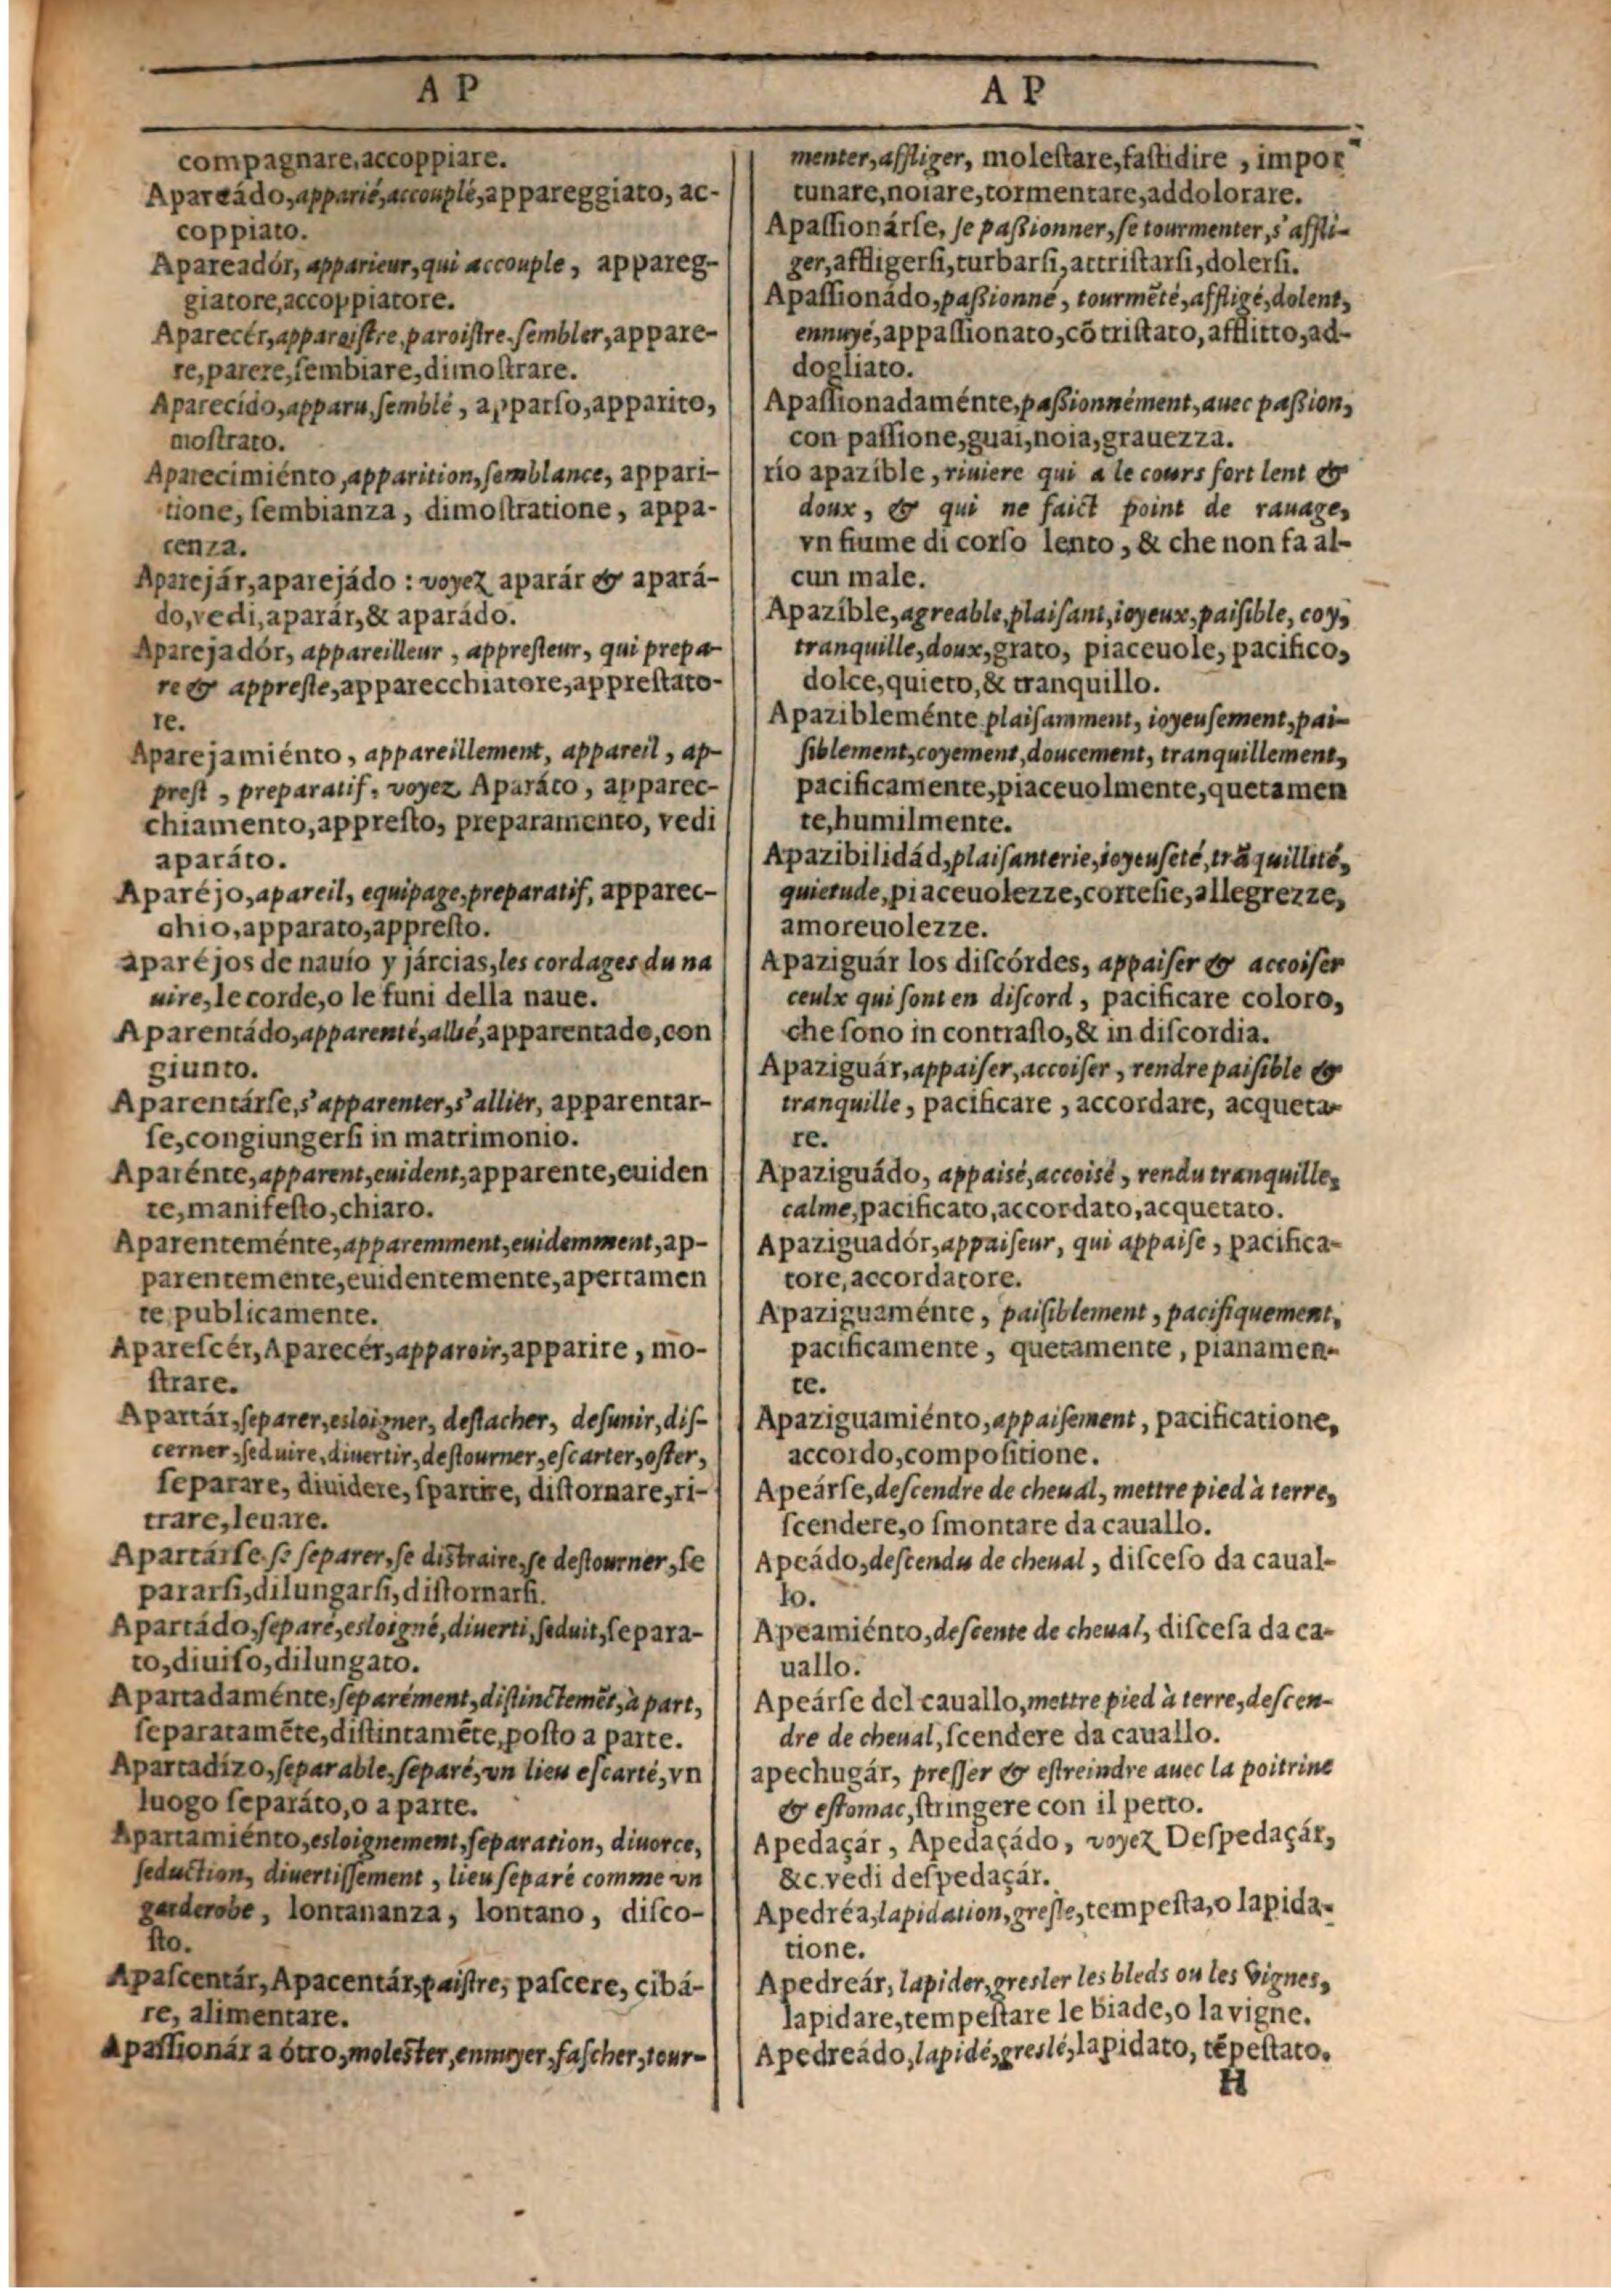 A P
compagnare,accoppiare.
Apareádo,apparié,accouplé,appareggiato, ac-
coppiato.
Apareadór, apparieur,qui accouple, appareg-
giatore,accoppiatore.
Aparecér,apparoiſtre,paroiſtre,ſembler,appare-
re,parere,ſembiare,dimoſtrare.
Aparecído,apparu,ſemblé, apparſo,apparito,
moſtrato.
Aparecimiénto,apparition,ſemblance, appari-
tione, ſembianza, dimoſtratione, appa-
renza.
Aparejár,aparejádo : voyez aparár & apará-
do,vedi,aparár,& aparádo.
Aparejadór, appareilleur, appreſteur, qui prepa-
re & appreſte,apparecchiatore,appreſtato-
re.
Aparejamiénto, appareillement, appareil, ap-
preſt, preparatif, voyez Aparáto, apparec-
chiamento,appreſto, preparamento, vedi
aparáto.
Aparéjo,apareil, equipage,preparatif, apparec-
chio,apparato,appreſto.
aparéjos de nauío y járcias,les cordages du na
uire,le corde,o le funi della naue.
Aparentádo,apparenté,allié,apparentado,con
giunto.
Aparentárſe,s'apparenter,s'allier, apparentar-
ſe,congiungerſi in matrimonio.
Aparénte,apparent,euident,apparente,euiden
te,manifeſto,chiaro.
Aparenteménte,apparemment,euidemment,ap-
parentemente,euidentemente,apertamen
te,publicamente.
Apareſcér,Aparecér,apparoir,apparire, mo-
ſtrare.
Apartár,ſeparer,esloigner, deſtacher, deſunir,diſ-
cerner,ſeduire,diuertir,deſtourner,eſcarter,oſter,
ſeparare, diuidere, ſpartire, diſtornare,ri-
trare,leuare.
Apartárſe,ſe ſeparer,ſe diſtraire,ſe deſtourner,ſe
pararſi,dilungarſi,diſtornarſi.
Apartádo,ſeparé,esloigné,diuerti,ſeduit,ſepara-
to,diuiſo,dilungato.
Apartadaménte,ſeparément,diſtinctemẽt,à part,
ſeparatamẽte,diſtintamẽte,poſto a parte.
Apartadízo,ſeparable,ſeparé,vn lieu eſcarté,vn
luogo ſeparáto,o a parte.
Apartamiénto,esloignement,ſeparation, diuorce,
ſeduction, diuertiſſement, lieu ſeparé comme vn
garderobe, lontananza, lontano, diſco-
ſto.
Apaſcentár, Apacentár,paiſtre, paſcere, cibá-
re, alimentare.
Apaſſionár a ótro,moleſter,ennuyer,faſcher,tour-
A P
menter,affliger, moleſtare,faſtidire, impor
tunare,noiare,tormentare,addolorare.
Apaſſionárſe, ſe paſsionner,ſe tourmenter,s'affli-
ger,affligerſi,turbarſi,attriſtarſi,dolerſi.
Apaſſionádo,paſsionné, tourmẽté,affligé,dolent,
ennuyé,appaſſionato,cõtriſtato,afflitto,ad-
dogliato.
Apaſſionadaménte,paſsionnément,auec paſsion,
con paſſione,guai,noia,grauezza.
río apazíble, riuiere qui a le cours fort lent &
doux, & qui ne faict point de rauage,
vn fiume di corſo lento, & che non fa al-
cun male.
Apazíble,agreable,plaiſant,ioyeux,paiſible, coy,
tranquille,doux,grato, piaceuole, pacifico,
dolce,quieto,& tranquillo.
Apazibleménte plaiſamment, ioyeuſement,pai-
ſiblement,coyement,doucement, tranquillement,
pacificamente,piaceuolmente,quetamen
te,humilmente.
Apazibilidád,plaiſanterie,ioyeuſeté,trãquillité,
quietude,piaceuolezze,corteſie,allegrezze,
amoreuolezze.
Apaziguár los diſcórdes, appaiſer & accoiſer
ceulx qui ſont en diſcord, pacificare coloro,
che ſono in contraſto,& in diſcordia.
Apaziguár,appaiſer,accoiſer, rendre paiſible &
tranquille, pacificare, accordare, acqueta-
re.
Apaziguádo, appaiſé,accoiſé, rendu tranquille,
calme,pacificato,accordato,acquetato.
Apaziguadór,appaiſeur, qui appaiſe, pacifica-
tore,accordatore.
Apaziguaménte, paiſiblement, pacifiquement,
pacificamente, quetamente, pianamen-
te.
Apaziguamiénto,appaiſement, pacificatione,
accordo,compoſitione.
Apeárſe,deſcendre de cheual, mettre pied à terre,
ſcendere,o ſmontare da cauallo.
Apeádo,deſcendu de cheual, diſceſo da caual-
lo.
Apeamiénto,deſcente de cheual, diſceſa da ca-
uallo.
Apeárſe del cauallo,mettre pied à terre,deſcen-
dre de cheual,ſcendere da cauallo.
apechugár, preſſer & eſtreindre auec la poitrine
& eſtomac,ſtringere con il petto.
Apedaçár, Apedaçádo, voyez Deſpedaçár,
&c.vedi deſpedaçár.
Apedréa,lapidation,greſle,tempeſta,o lapida-
tione.
Apedreár, lapider,gresler les bleds ou les vignes,
lapidare,tempeſtare le biade,o la vigne.
Apedreádo,lapidé,greslé,lapidato, tẽpeſtato.
H